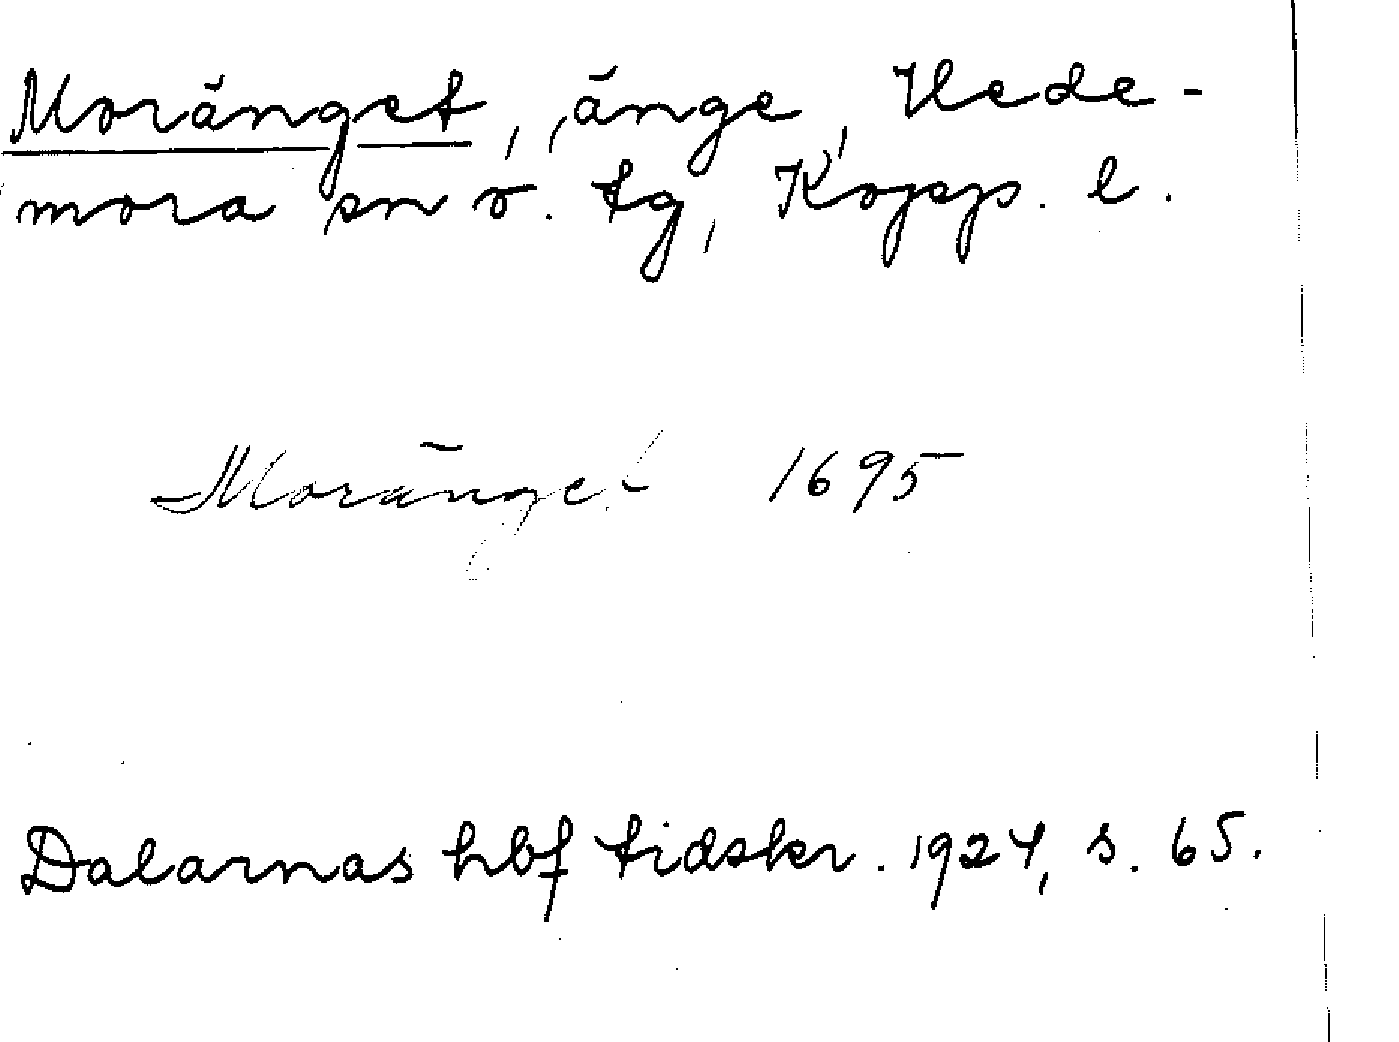 Moränget, änge, Hede-
mora sn o. tg, Kopp. l.
Moränget 1695
Dalarnas hbf tidskr. 1924, s. 65.